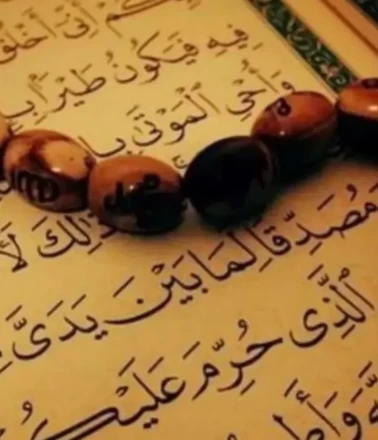 كُم أَنِّىٓ أَخْلُقُ
فِيهِ فَيَكُونُ طَيْرًۢا بِ
وَأُحْىِ ٱلْمَوْتَىٰ بِ
ذَٰلِكَ لَأ
مُصَدِّقًا لِّمَا بَيْنَ يَدَىَّ
ٱلَّذِى حُرِّمَ عَلَيْكُ
وَأَط